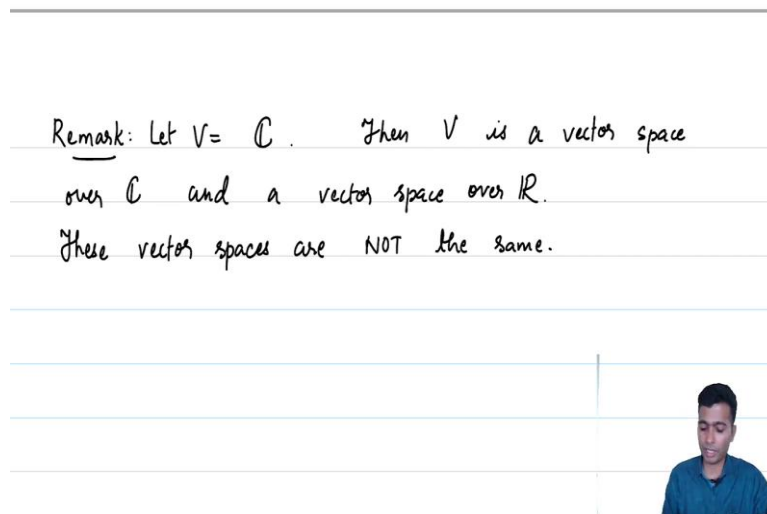 Remark: Let V = ℂ. Then V is a vector space
over ℂ and a vector space over ℝ.
These vector spaces are NOT the same.